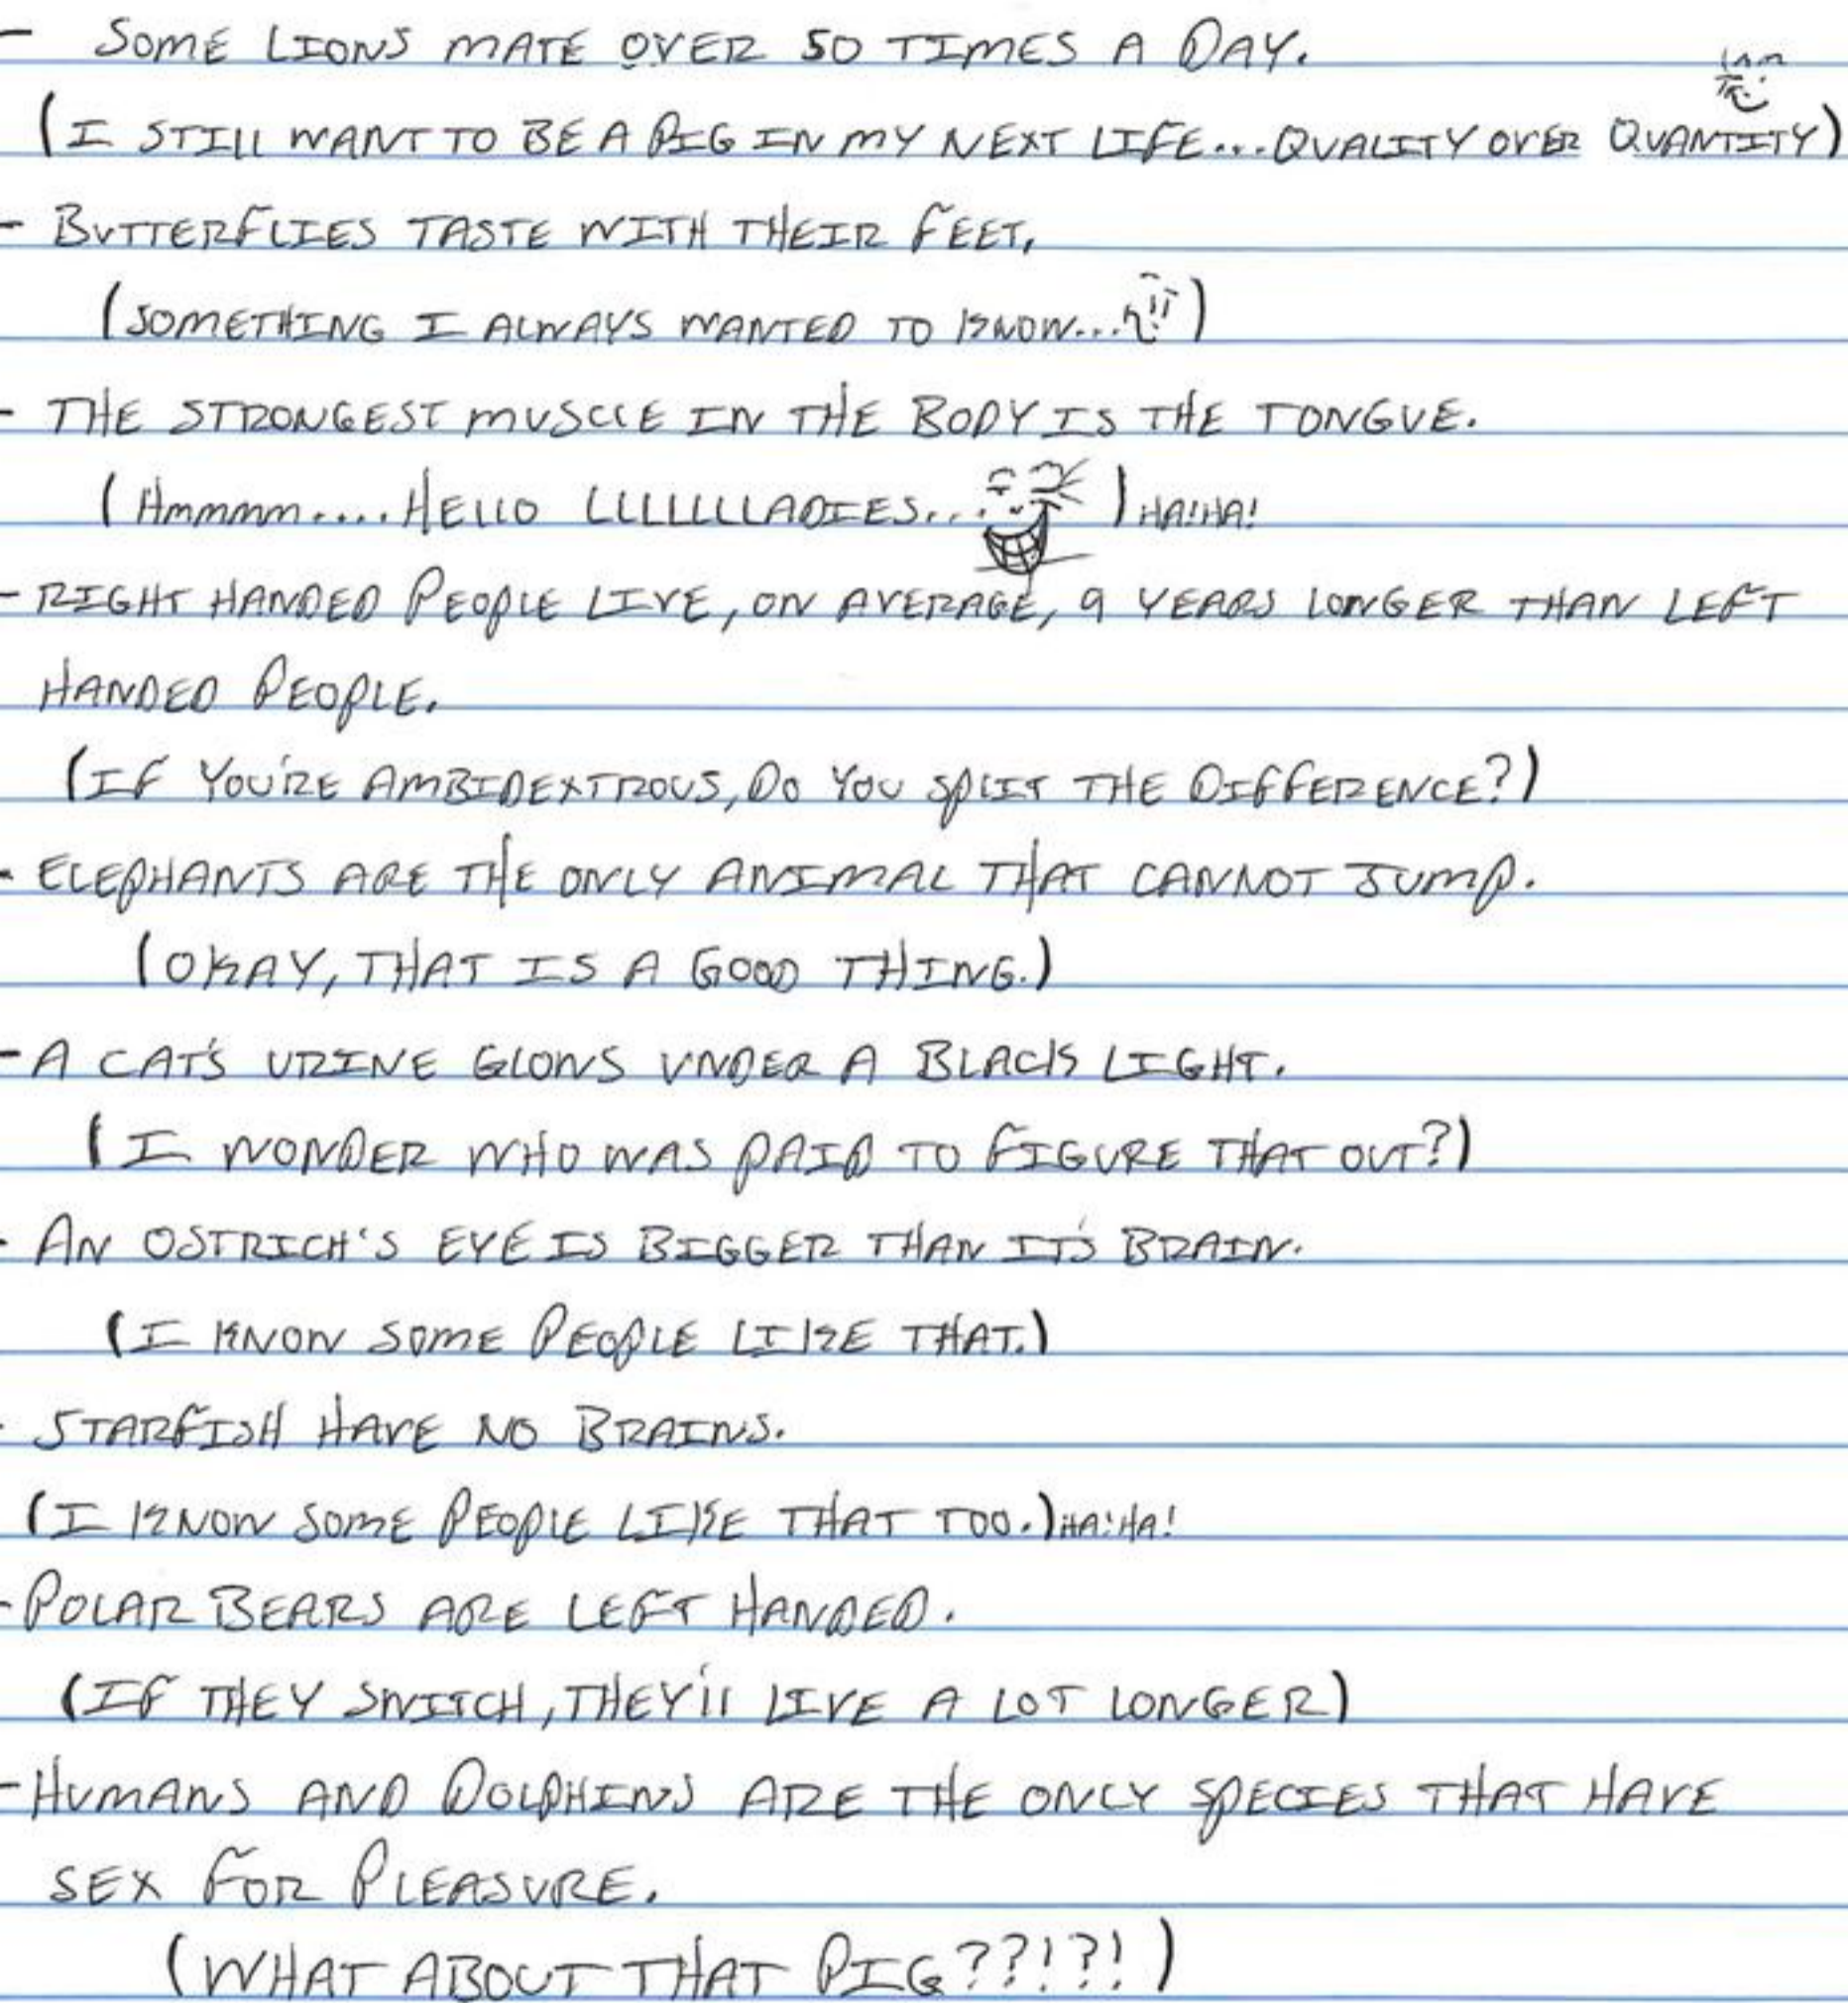 - SOME LIONS MATE OVER 50 TIMES A DAY.
(I STILL WANT TO BE A PIG IN MY NEXT LIFE...QUALITY OVER QUANTITY)
- BUTTERFLIES TASTE WITH THEIR FEET.
(SOMETHING I ALWAYS WANTED TO KNOW...)
- THE STRONGEST MUSCLE IN THE BODY IS THE TONGUE.
(Hmmmm.... HELLO LLLLLLLADIES...) HA!HA!
- RIGHT HANDED PEOPLE LIVE, ON AVERAGE, 9 YEARS LONGER THAN LEFT
HANDED PEOPLE.
(IF YOU'RE AMBIDEXTROUS, DO YOU SPLIT THE DIFFERENCE?)
- ELEPHANTS ARE THE ONLY ANIMAL THAT CANNOT JUMP.
(OKAY, THAT IS A GOOD THING.)
- A CAT'S URINE GLOWS UNDER A BLACK LIGHT.
(I WONDER WHO WAS PAID TO FIGURE THAT OUT?)
- AN OSTRICH'S EYE IS BIGGER THAN IT'S BRAIN.
(I KNOW SOME PEOPLE LIKE THAT.)
- STARFISH HAVE NO BRAINS.
(I KNOW SOME PEOPLE LIKE THAT TOO.) HA!HA!
- POLAR BEARS ARE LEFT HANDED.
(IF THEY SWITCH, THEY'll LIVE A LOT LONGER)
- HUMANS AND DOLPHINS ARE THE ONLY SPECIES THAT HAVE
SEX FOR PLEASURE.
(WHAT ABOUT THAT PIG??!?!)